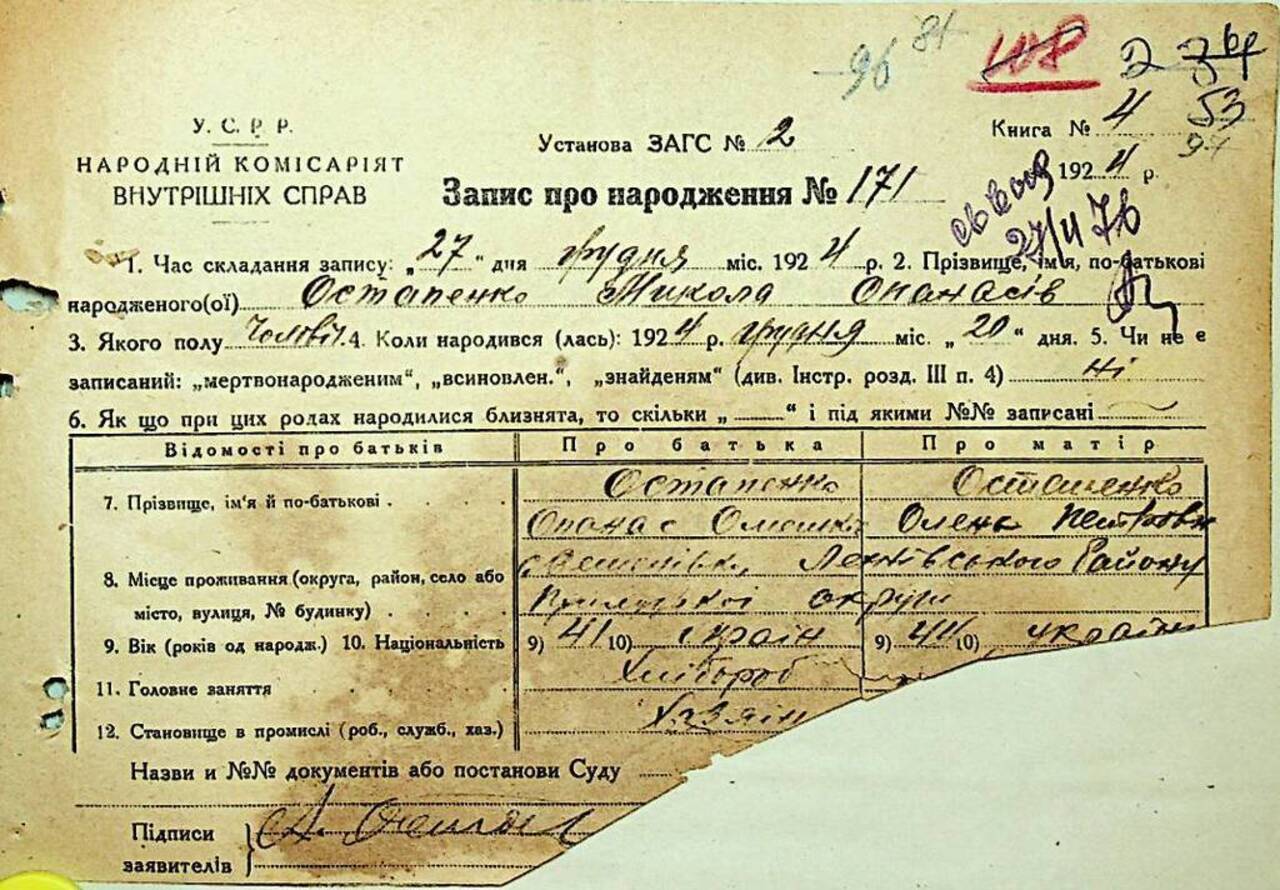 96 81 108 2 3
У. С. Р. Р.
НАРОДНІЙ КОМІСАРІЯТ
ВНУТРІШНІХ СПРАВ
Установа ЗАГС № 2
Книга № 4 53
1924 р.
Запис про народження № 171
27/II 76
1. Час складання запису: „27" дня грудня міс. 1924 р. 2. Прізвище, ім'я, по-батькові
народженого(ої) Остапенко Микола Опанасів
3. Якого полу Чоловіч. 4. Коли народився (лась): 1924 р. грудня міс. „20" дня. 5. Чи не є
записаний: „мертвонародженим", „всиновлен.", „знайденям" (див. Інстр. розд. III п. 4) Ні
6. Як що при цих родах народилися близнята, то скільки „ " і під якими №№ записані
Відомості про батьків Про батька Про матір
7. Прізвище, ім'я й по-батькові . Остапенко Остапенко
Опанас Олена Петровн
8. Місце проживання (округа, район, село або Району
місто, вулиця, № будинку) . . . Прилуцької округи
9. Вік (років од народж.) 10. Національність 9) 41 10) україн 9) 44 10) україн
11. Головне заняття . . . . . Хлібороб
12. Становище в промислі (роб., служб., хаз.) Хазяїн
Назви и №№ документів або постанови Суду
Підписи
заявителів